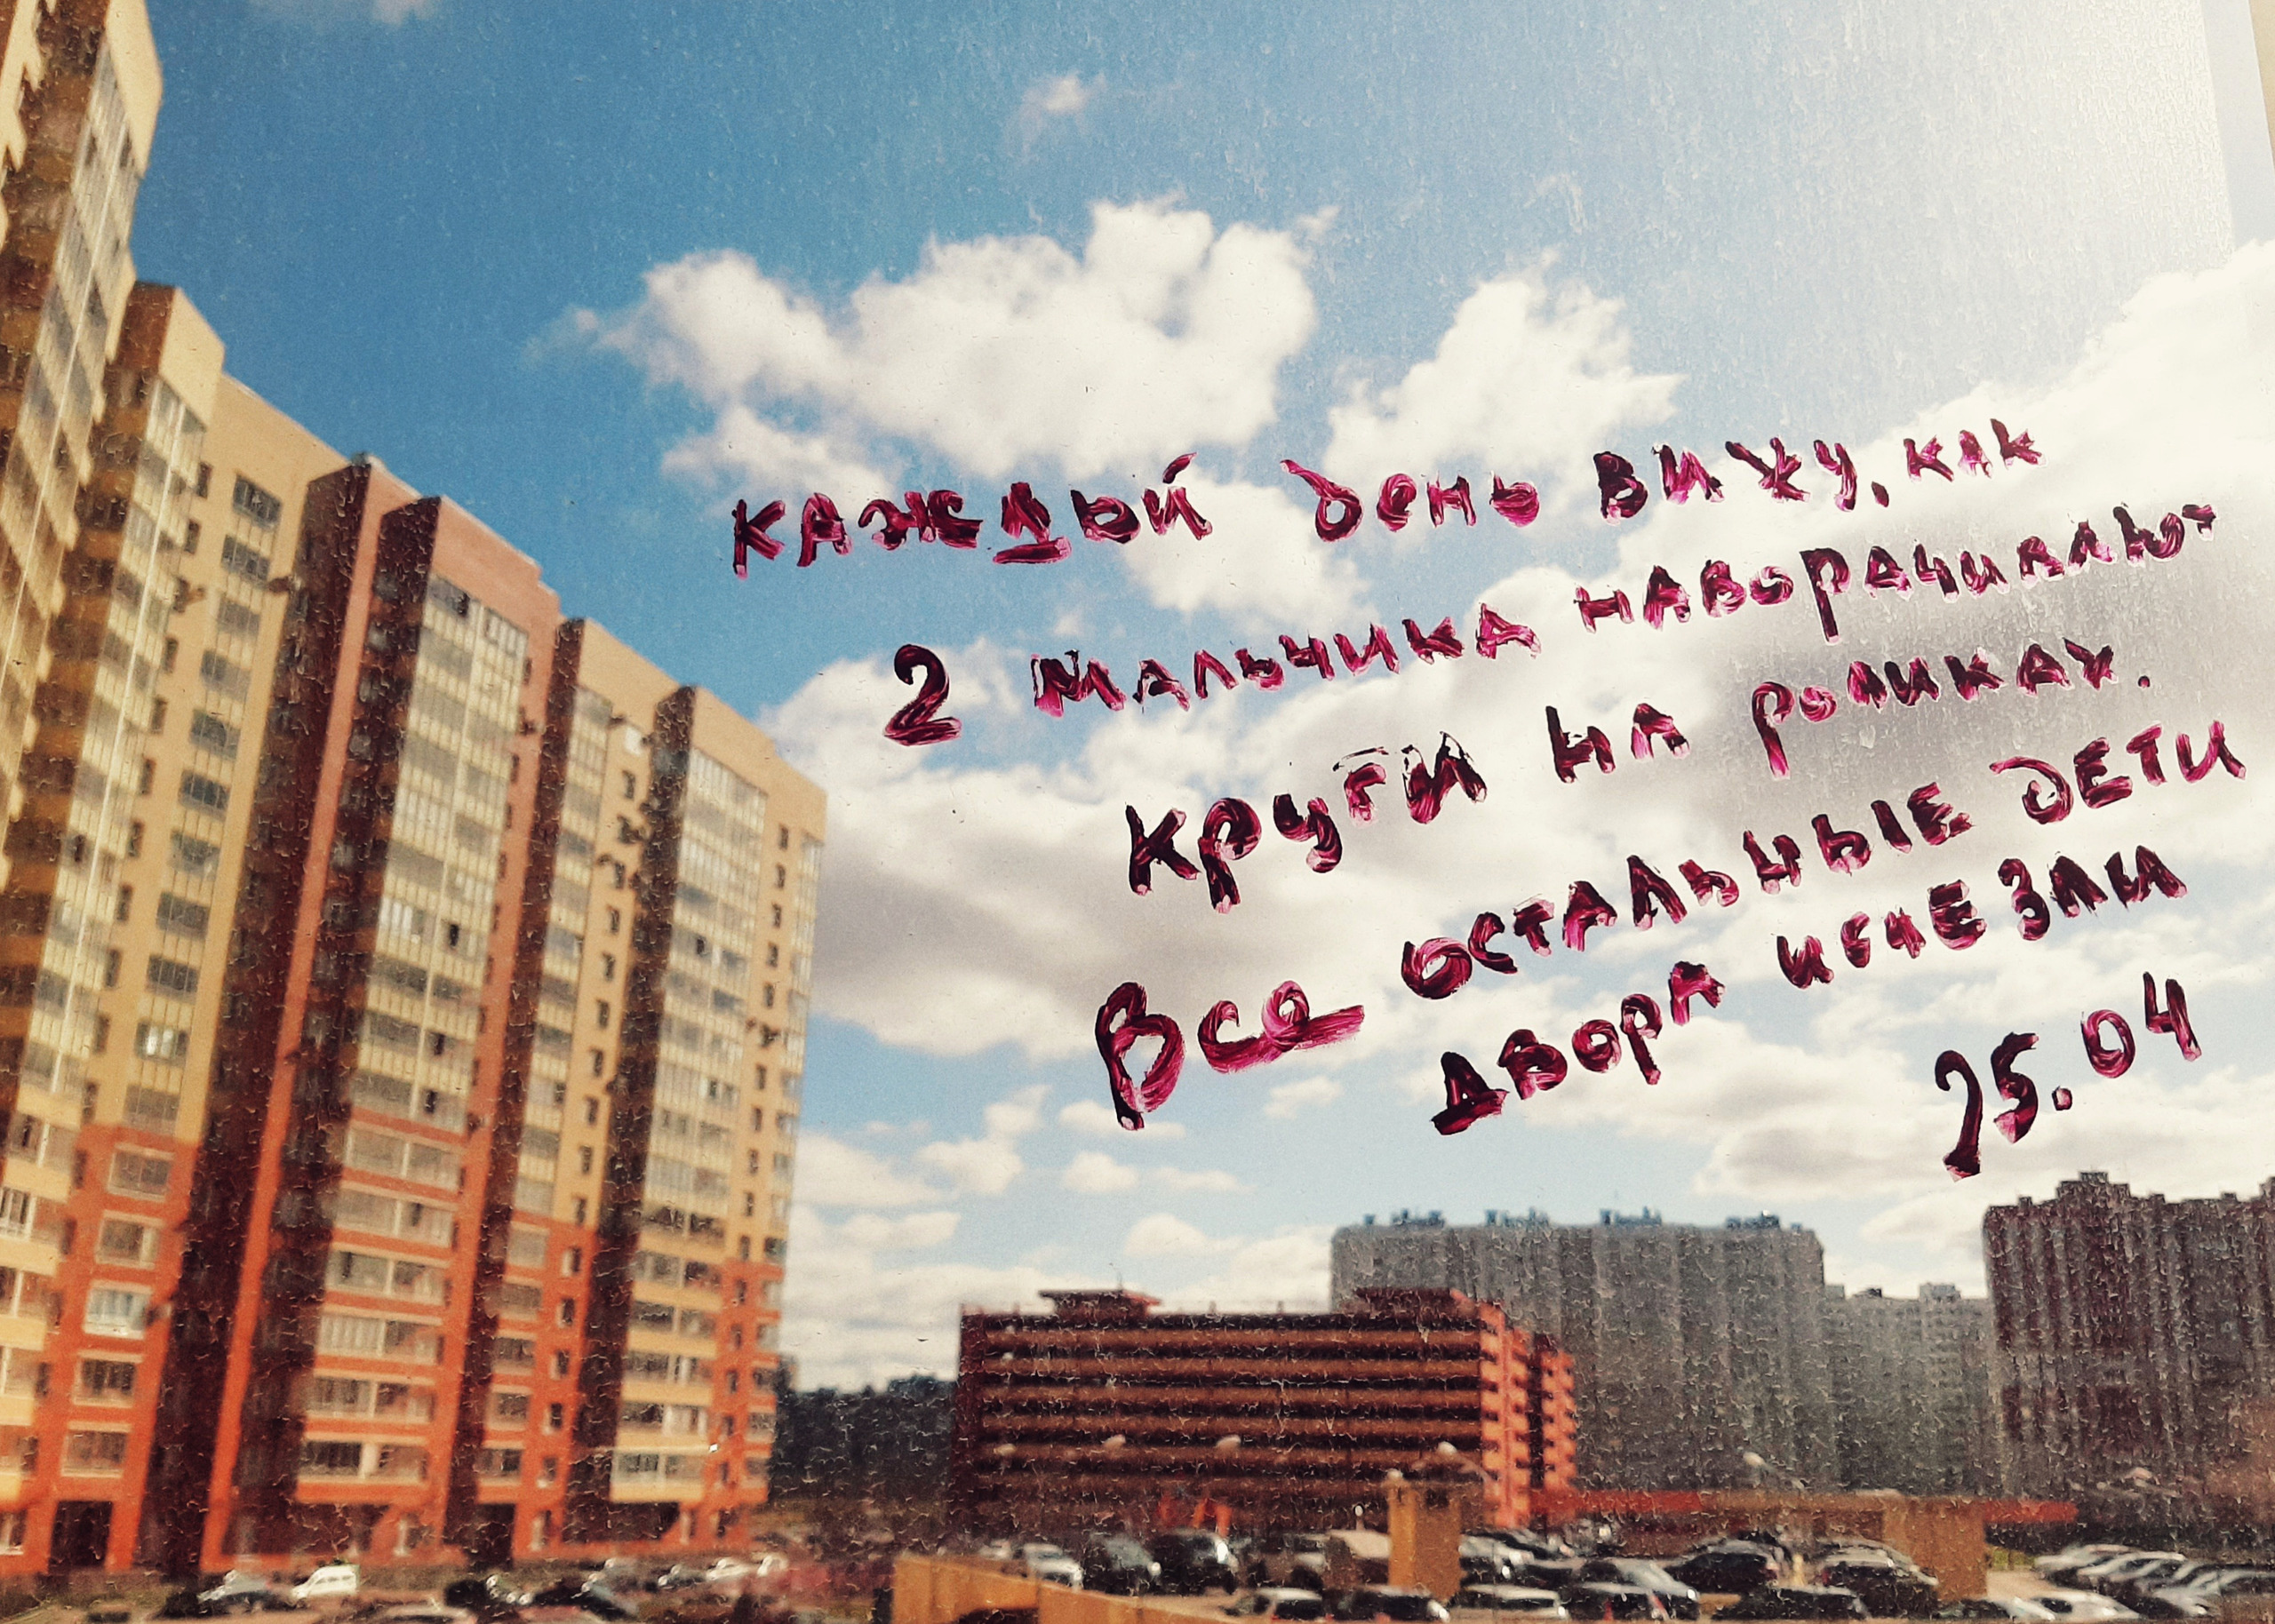 каждый день вижу, как
2 мальчика наворачивают
круги на роликах.
Все остальные дети
двора исчезли
25.04